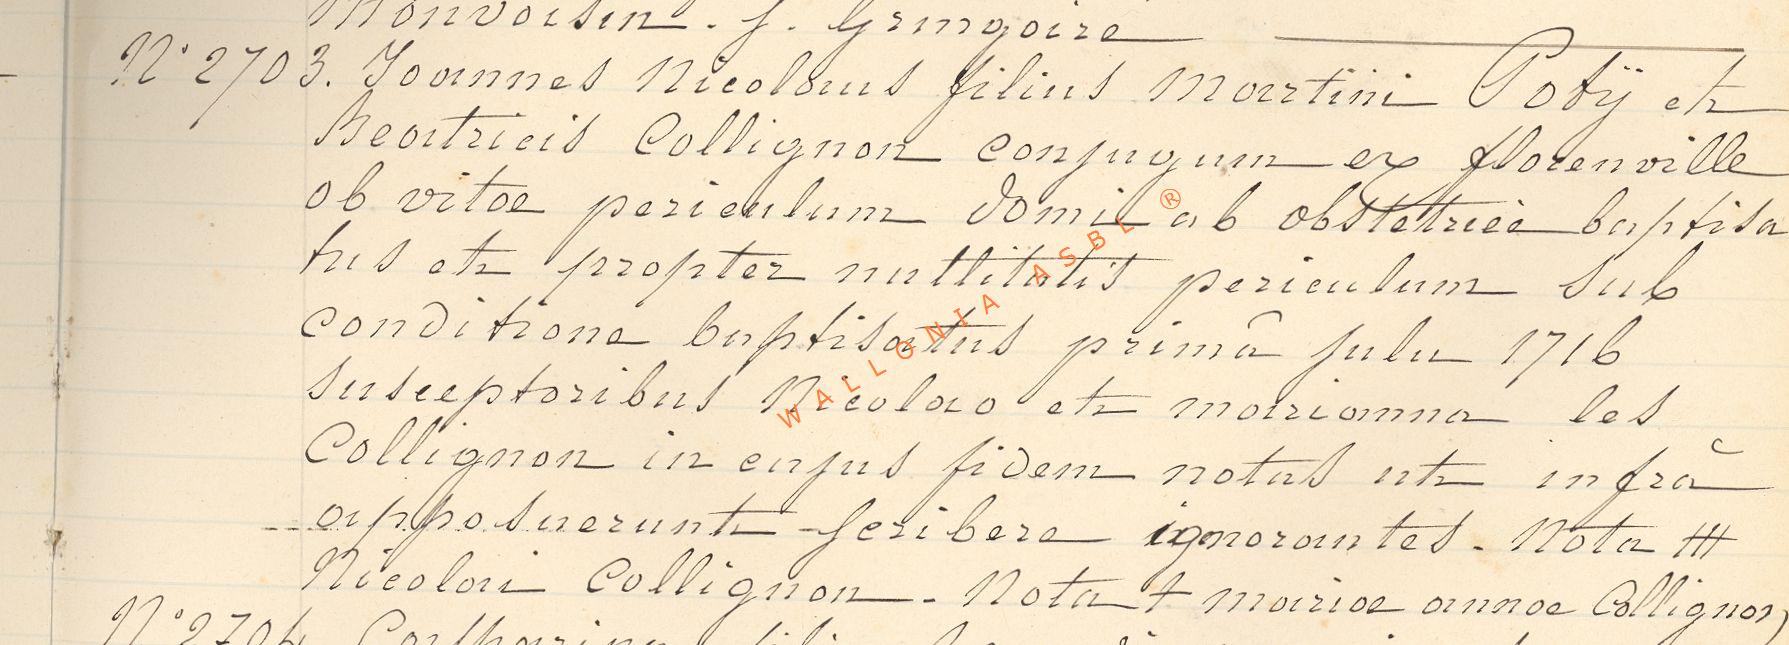 Monvoisin. J. Gringoire
N° 2703. Joannes Nicolaus filius Martini Potÿ et
Beatricis Collignon conjugum ex florenville
ob vitae periculum domi ab obstetrice baptisa
tus et propter nullitatis periculum sub
conditione baptisatus primâ julii 1716
susceptoribus Nicolao et marianna les
Collignon in cujus fidem notas ut infrà
apposuerunt scribere ignorantes. Nota ++
Nicolai Collignon. Nota + mariae annae Collignon
N° 2704
WALLONIA ASBL ®